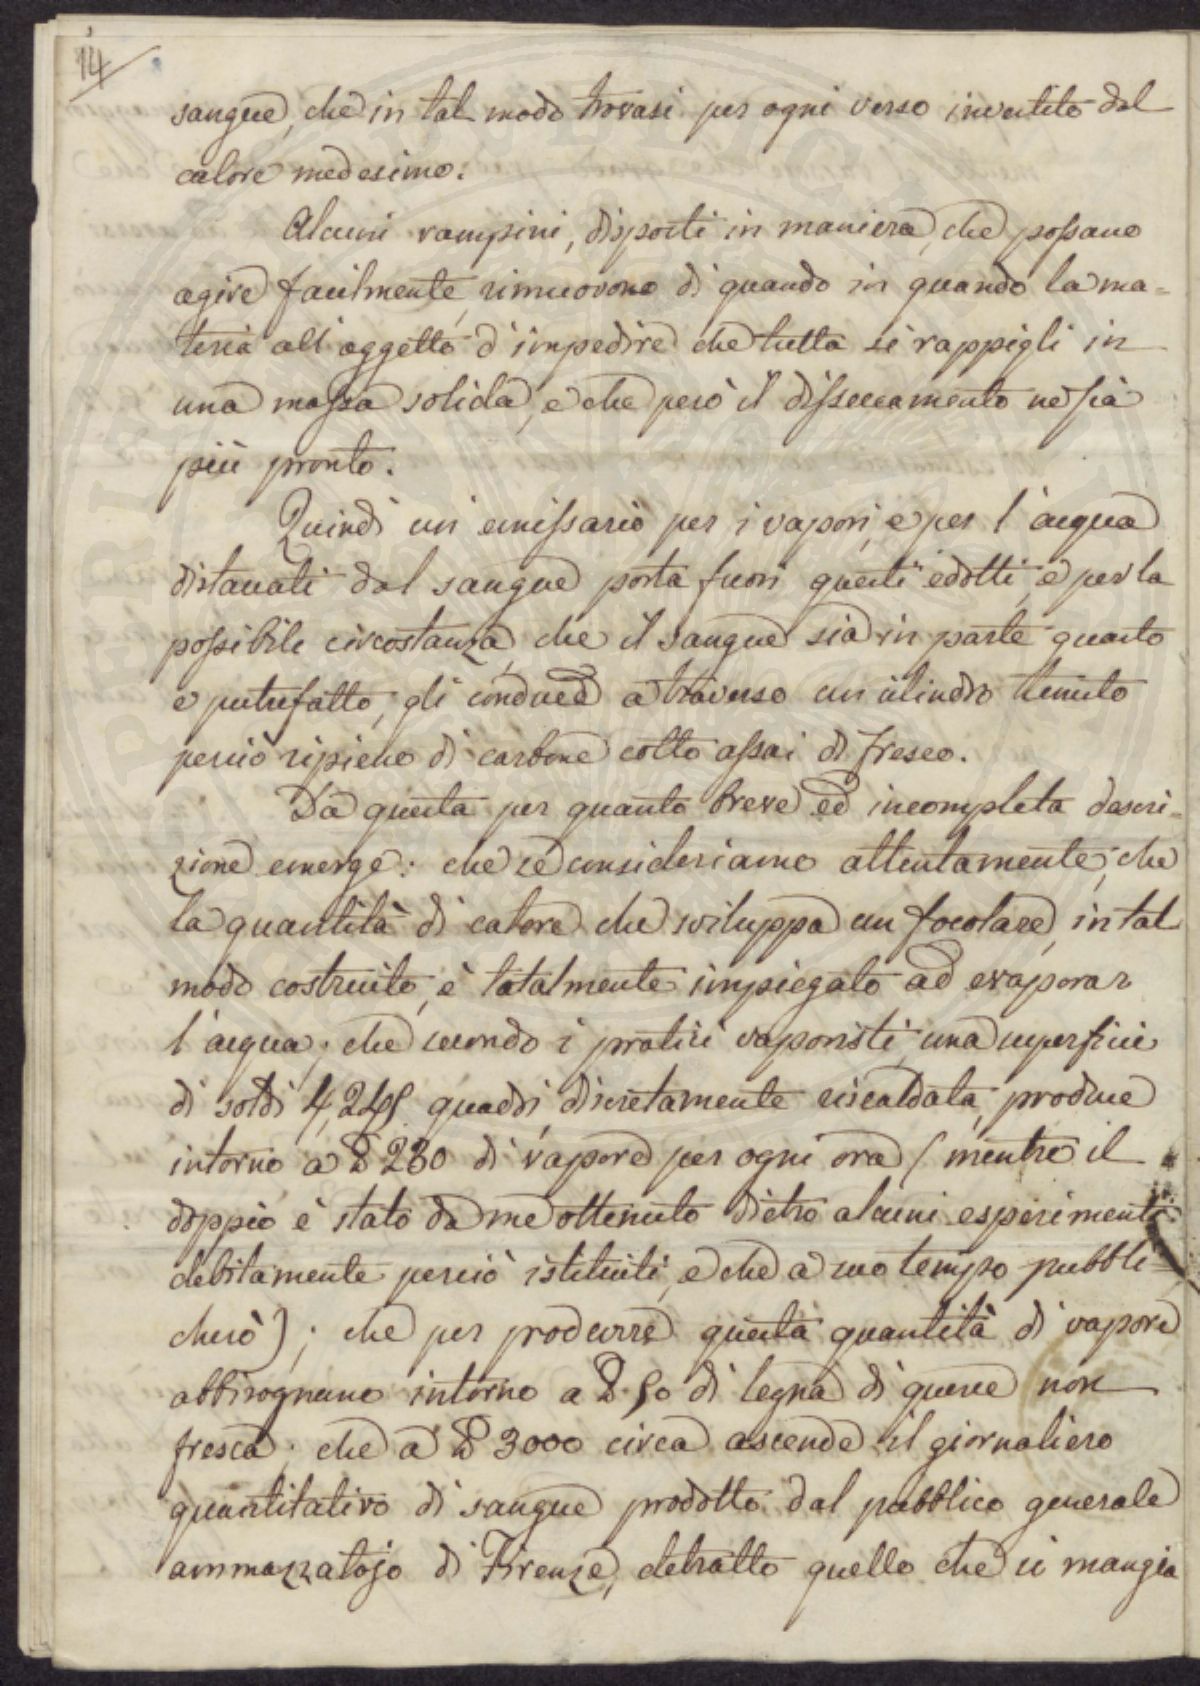 14
sangue, che in tal modo trovasi per ogni verso investito dal
calore medesimo.
Alcuni rampini, disposti in maniera, che possano
agire facilmente, rimuovono di quando in quando la ma=
teria all'oggetto d'impedire che tutta si rappigli in
una massa solida, e che però il disseccamento ne sia
più pronto.
Quindi un emissario per i vapori, e per l'acqua
distaccati dal sangue porta fuori questi edotti, e per la
possibile circostanza, che il sangue sia in parte guasto
e putrefatto, gli conduce a traverso un cilindro tenuto
perciò ripieno di carbone cotto assai di fresco.
Da questa per quanto breve ed incompleta descri=
zione emerge: che se consideriamo attentamente, che
la quantità di calore che sviluppa un focolare, in tal
modo costruito, è totalmente impiegato ad evaporar
l'acqua; che secondo i pratici vaporisti, una superficie
di soldi quadri, discretamente riscaldata, produce
intorno a ₶ 230 di vapore per ogni ora (mentre il
doppio è stato da me ottenuto dietro alcuni esperimenti
debitamente perciò istituiti, e che a suo tempo pubbli=
cherò); che per produrre questa quantità di vapore
abbisognano intorno a ₶ 50 di legna di querce non
fresca; che a ₶ 3000 circa ascende il giornaliero
quantitativo di sangue prodotto dal pubblico generale
ammazzatojo di Firenze, detratto quello che si mangia